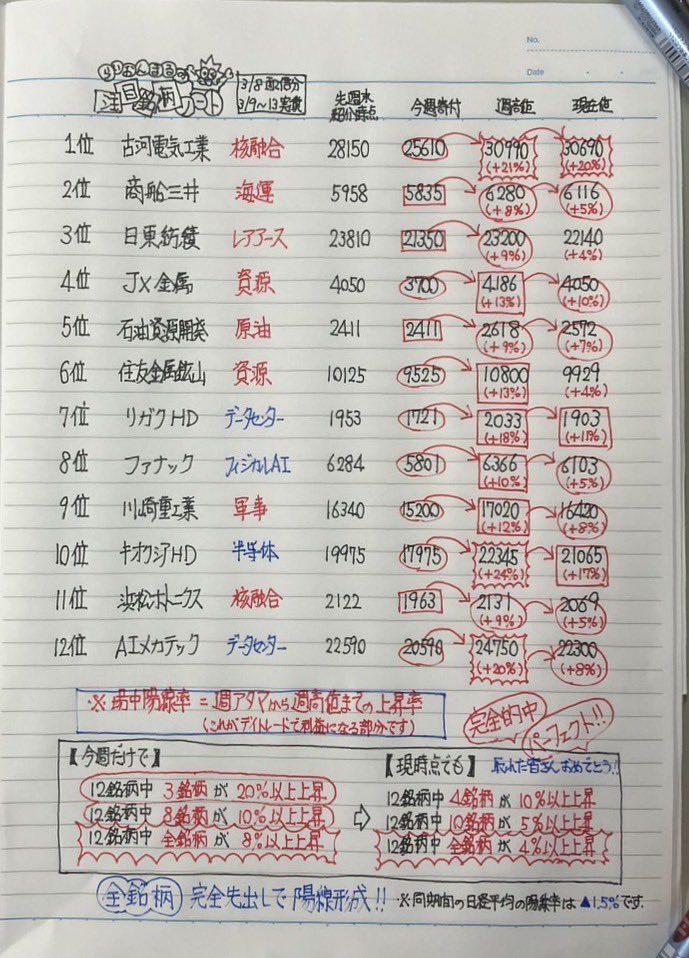 No.
Date
らいおんまるの
注目銘柄ノート
3/8配信分
3/9~13実績
先週末 紹介時点 今週寄付 週高値 現在値
1位 古河電気工業 核融合 28150 25610 30990 (+21%) 30690 (+20%)
2位 商船三井 海運 5958 5835 6280 (+8%) 6116 (+5%)
3位 日東紡績 レアアース 23810 21350 23200 (+9%) 22140 (+4%)
4位 JX金属 資源 4050 3700 4186 (+13%) 4050 (+10%)
5位 石油資源開発 原油 2411 2411 2618 (+9%) 2572 (+7%)
6位 住友金属鉱山 資源 10125 9525 10800 (+13%) 9929 (+4%)
7位 リガクHD データセンター 1953 1721 2033 (+18%) 1903 (+11%)
8位 ファナック フィジカルAI 6284 5801 6366 (+10%) 6103 (+5%)
9位 川崎重工業 軍事 16340 15200 17020 (+12%) 16420 (+8%)
10位 キオクシアHD 半導体 19975 17975 22345 (+24%) 21065 (+17%)
11位 浜松ホトニクス 核融合 2122 1963 2131 (+9%) 2069 (+5%)
12位 AIメカテック データセンター 22590 20590 24750 (+20%) 22300 (+8%)
※場中陽線率=週アタマから週高値までの上昇率
(これがデイトレードで利益になる部分です)
完全的中
パーフェクト!!
【今週だけで】
12銘柄中 3銘柄が 20%以上上昇
12銘柄中 8銘柄が 10%以上上昇
12銘柄中 全銘柄が 8%以上上昇
⇨
【現時点でも】 取れた皆さんおめでとう!!
12銘柄中 4銘柄が 10%以上上昇
12銘柄中 10銘柄が 5%以上上昇
12銘柄中 全銘柄が 4%以上上昇
全銘柄 完全先出しで陽線形成!!
※同期間の日経平均の陽線率は▲1.5%です.